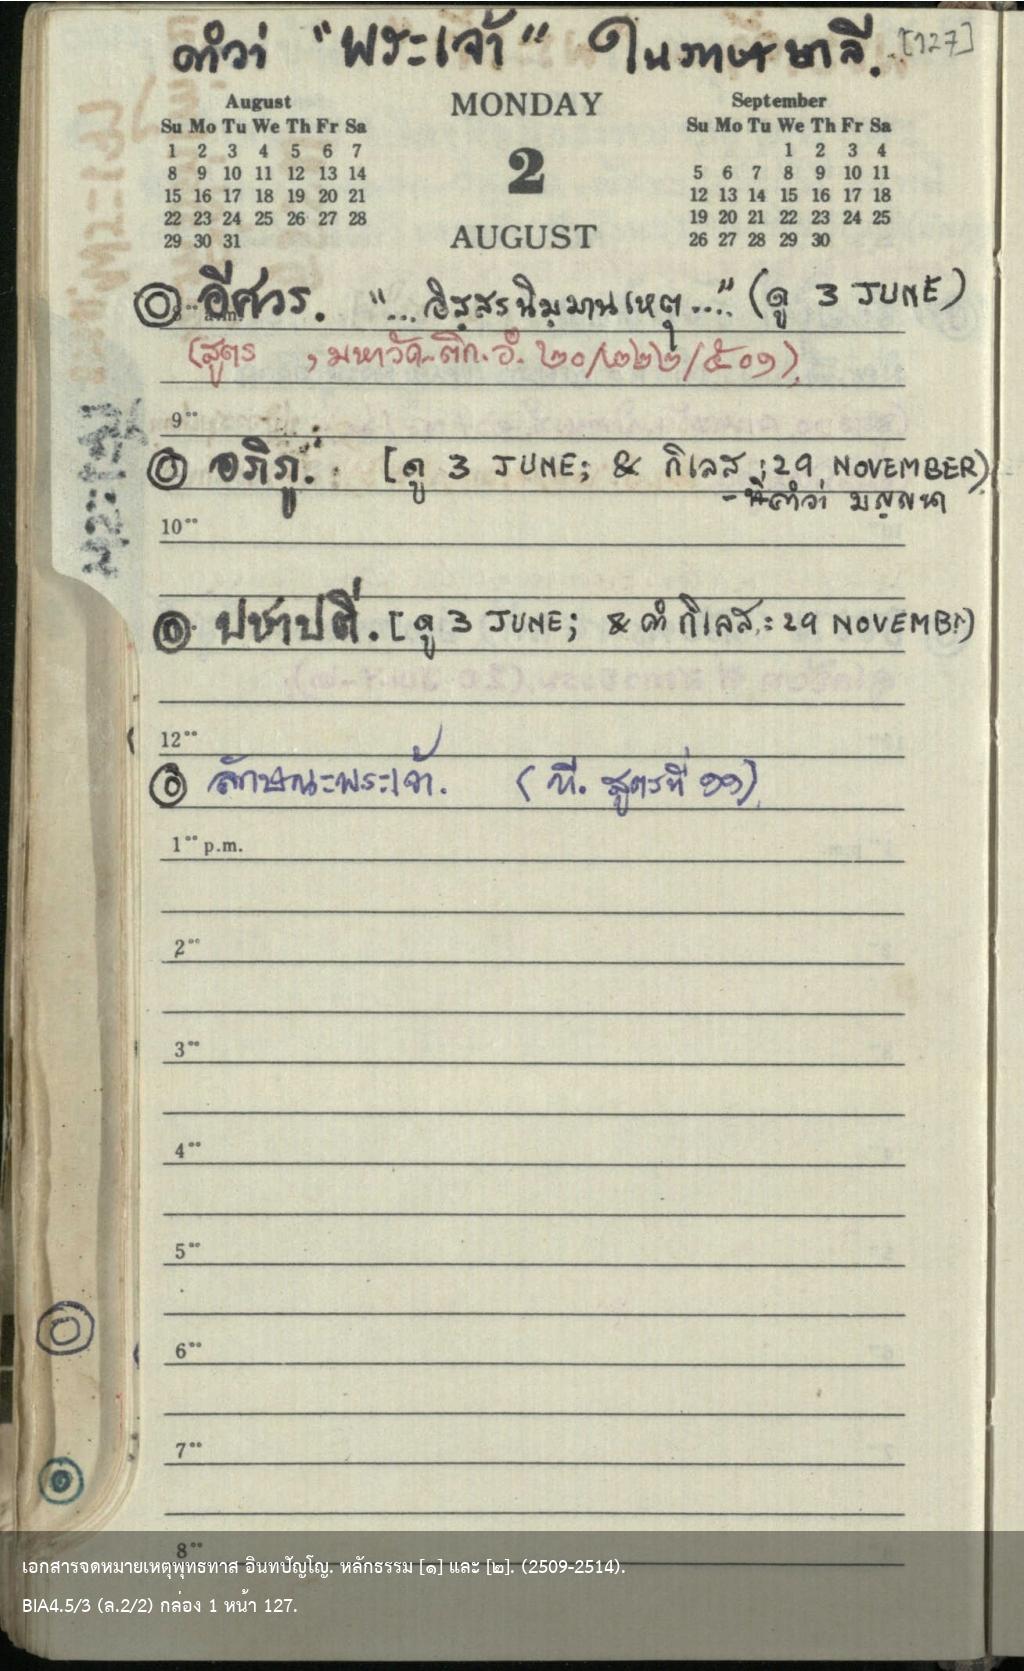 คำว่า "พระเจ้า" ในภาษาบาลี. [127]
August
Su Mo Tu We Th Fr Sa
1 2 3 4 5 6 7
8 9 10 11 12 13 14
15 16 17 18 19 20 21
22 23 24 25 26 27 28
29 30 31
MONDAY
2
AUGUST
September
Su Mo Tu We Th Fr Sa
1 2 3 4
5 6 7 8 9 10 11
12 13 14 15 16 17 18
19 20 21 22 23 24 25
26 27 28 29 30
อีศวร. "...อิสฺสรนิมฺมานเหตุ...." (ดู 3 JUNE)
(สูตร , มหาวัค. ติก. อํ. ๒๐/๒๒๒/๕๐๑).
9⁰⁰
อภิภู. [ดู 3 JUNE; & กิเลส : 29 NOVEMBER)
- ที่คำว่า มญฺญนา
10⁰⁰
ปชาปตี. [ดู 3 JUNE; & คำ กิเลส : 29 NOVEMBER)
12⁰⁰
ลักษณะพระเจ้า. (ที. สูตรที่ ๑๑).
1⁰⁰ p.m.
2⁰⁰
3⁰⁰
4⁰⁰
5⁰⁰
6⁰⁰
7⁰⁰
8⁰⁰
เอกสารจดหมายเหตุพุทธทาส อินทปัญโญ. หลักธรรม [๑] และ [๒]. (2509-2514).
BIA4.5/3 (ล.2/2) กล่อง 1 หน้า 127.